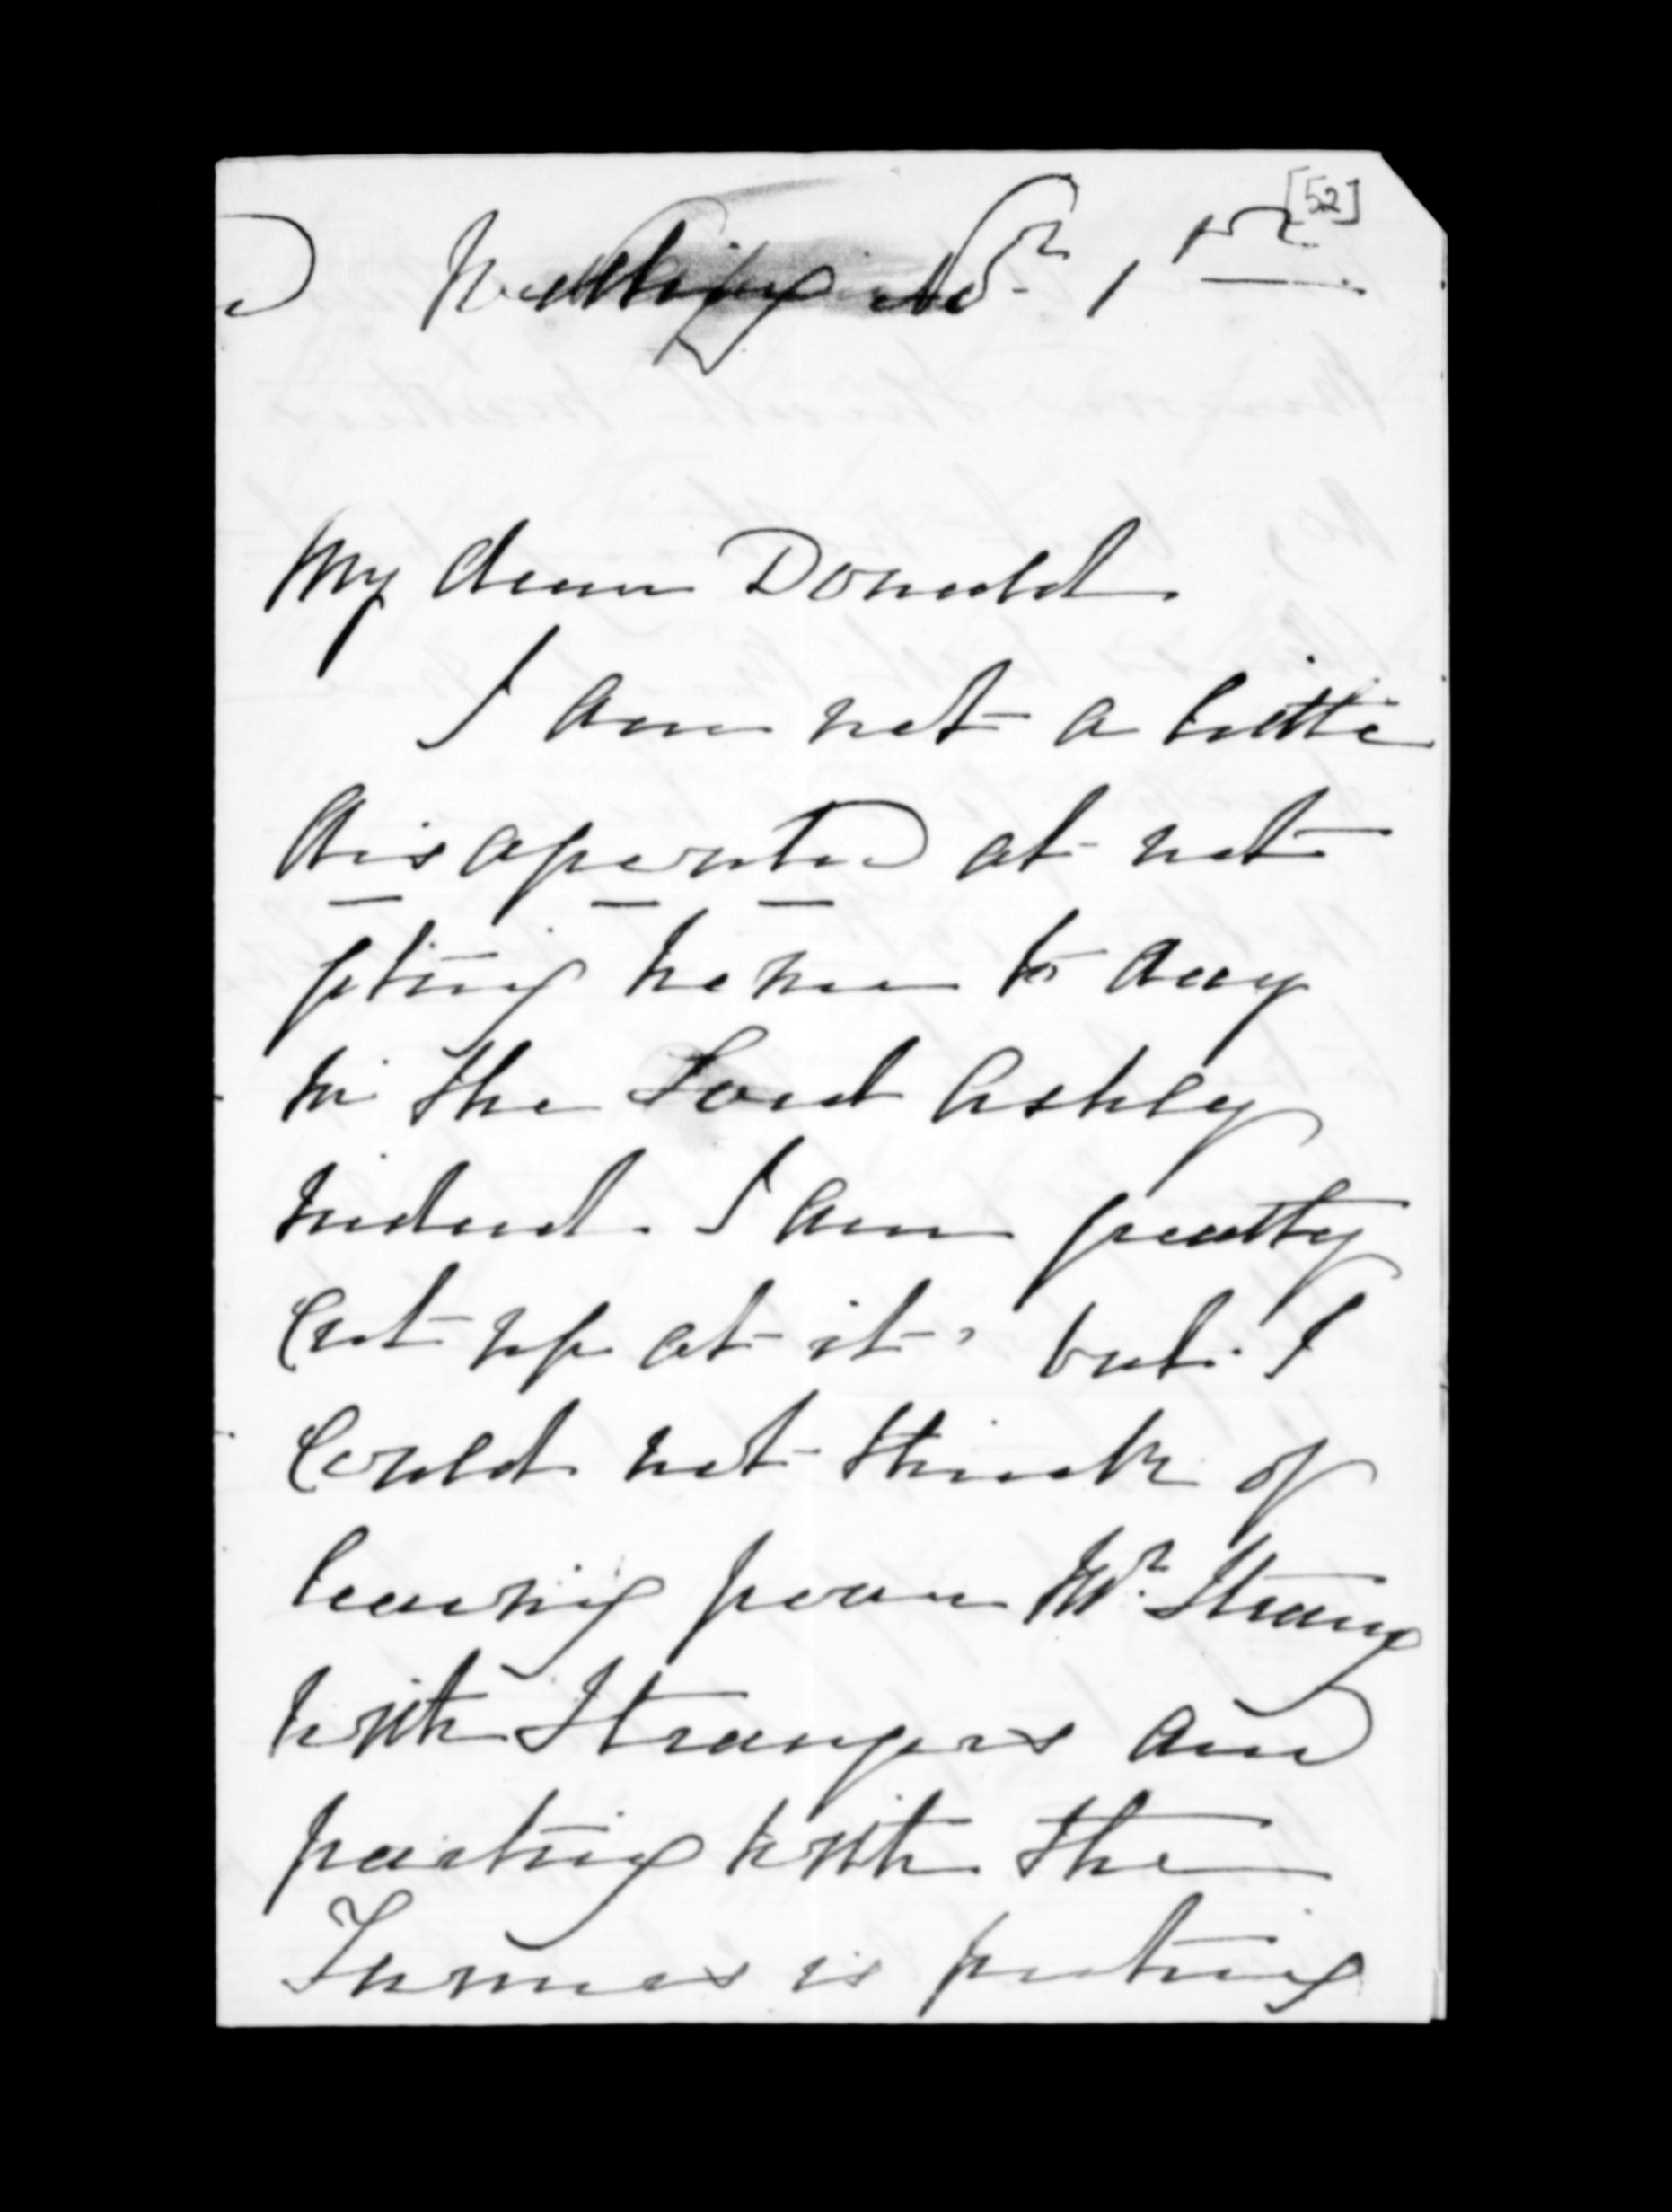 [52]
Novr 1st
My dear Donald
I am not a little
disapointed at not
gting home to day
in the Lord Ashley
indeed I am greatly
Cut up at it, but I
Could not think of
leaving poor Mr Strang
with Strangers and
parting with the
Thomas is puting